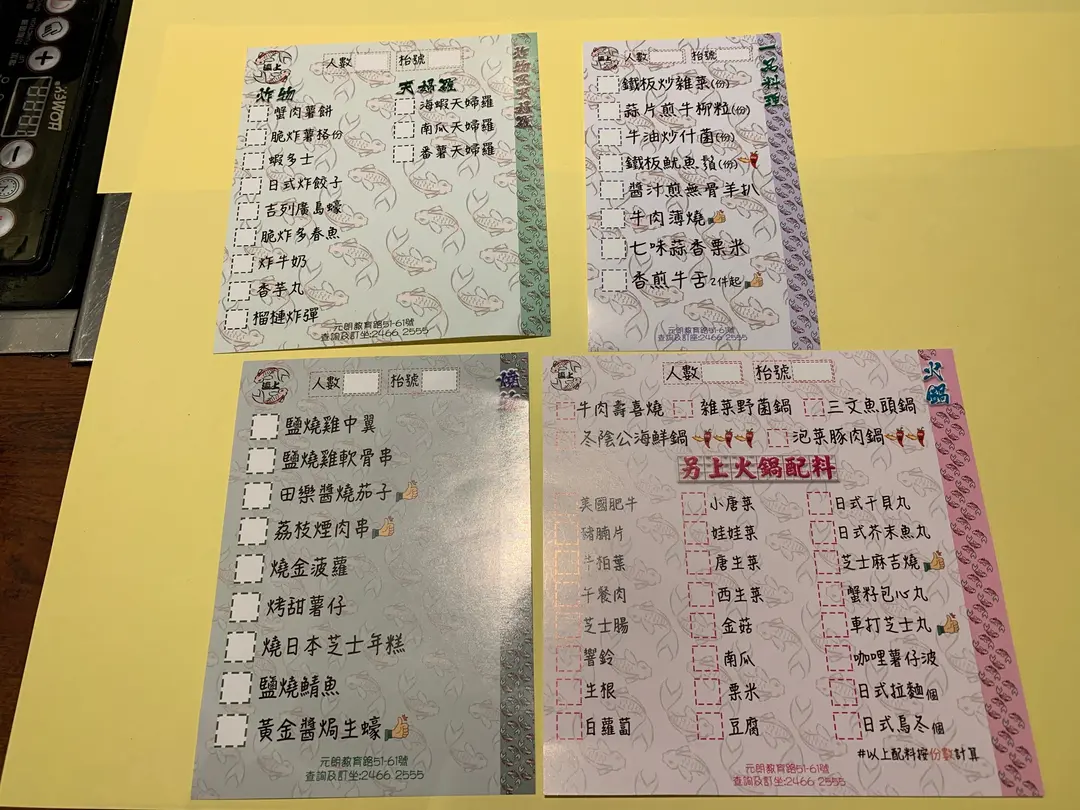 人數 枱號
炸物及天婦羅
炸物
蟹肉薯餅
脆炸薯格(份)
蝦多士
日式炸餃子
吉列廣島蠔
脆炸多春魚
炸牛奶
香芋丸
榴槤炸彈
天婦羅
海蝦天婦羅
南瓜天婦羅
番薯天婦羅
元朗教育路51-61號
查詢及訂坐:2466 2555
人數 枱號
一品料理
鐵板炒雜菜(份)
蒜片煎牛柳粒(份)
牛油炒什菌(份)
鐵板魷魚鬚(份)
醬汁煎無骨羊扒
牛肉薄燒
七味蒜香粟米
香煎牛舌2件起
元朗教育路51-61號
查詢及訂座:2466 2555
人數 枱號
燒
鹽燒雞中翼
鹽燒雞軟骨串
田樂醬燒茄子
荔枝煙肉串
燒金菠蘿
烤甜薯仔
燒日本芝士年糕
鹽燒鯖魚
黃金醬焗生蠔
元朗教育路51-61號
查詢及訂坐:2466 2555
人數 枱號
火鍋
牛肉壽喜燒 雜菜野菌鍋 三文魚頭鍋
冬陰公海鮮鍋 泡菜豚肉鍋
另上火鍋配料
美國肥牛 小唐菜 日式干貝丸
豬腩片 娃娃菜 日式芥末魚丸
牛柏葉 唐生菜 芝士麻吉燒
午餐肉 西生菜 蟹籽包心丸
芝士腸 金菇 車打芝士丸
響鈴 南瓜 咖哩薯仔波
生根 粟米 日式拉麵個
白蘿蔔 豆腐 日式烏冬個
#以上配料按份數計算
元朗教育路51-61號
查詢及訂坐:2466 2555